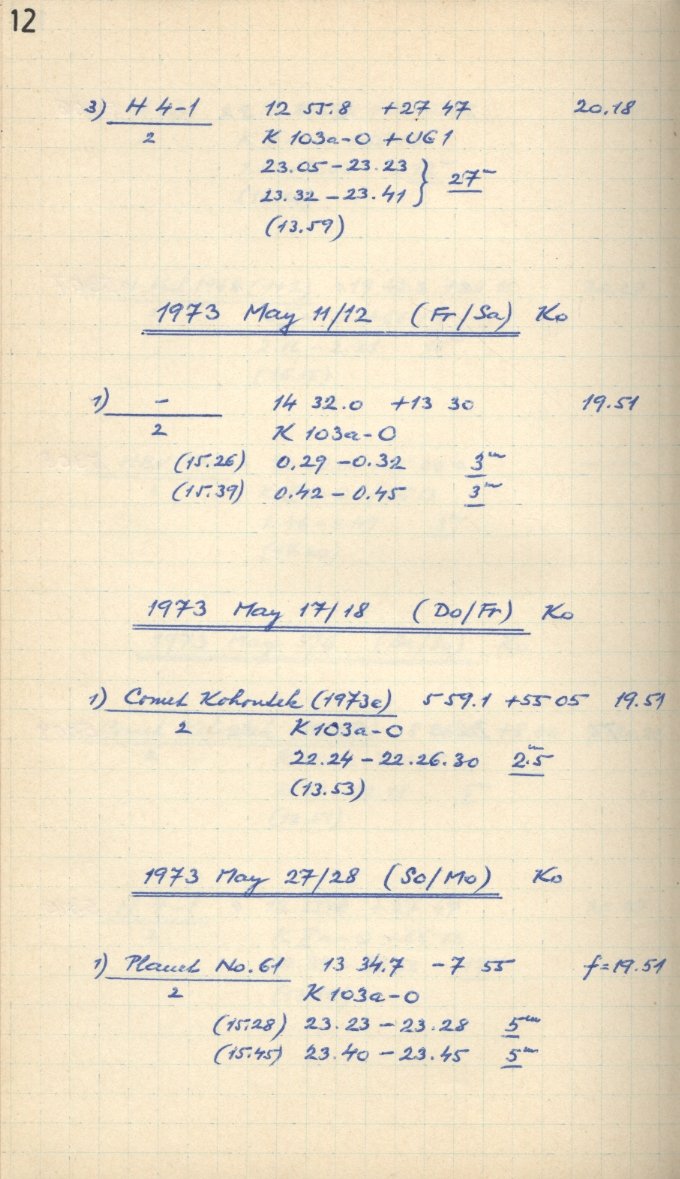 12
3) H 4-1 12 55.8 +27 47 20.18
2 K 103a-O + UG1
23.05 - 23.23
23.32 - 23.41 } 27m
(13.59)
1973 May 11/12 (Fr/Sa) Ko
1) - 14 32.0 +13 30 19.51
2 K 103a-O
(15.26) 0.29 - 0.32 3m
(15.39) 0.42 - 0.45 3m
1973 May 17/18 (Do/Fr) Ko
1) Comet Kohoutek (1973e) 5 59.1 +55 05 19.51
2 K 103a-O
22.24 - 22.26.30 2m.5
(13.53)
1973 May 27/28 (So/Mo) Ko
1) Planet No. 61 13 34.7 -7 55 f=19.51
2 K 103a-O
(15.28) 23.23 - 23.28 5m
(15.45) 23.40 - 23.45 5m